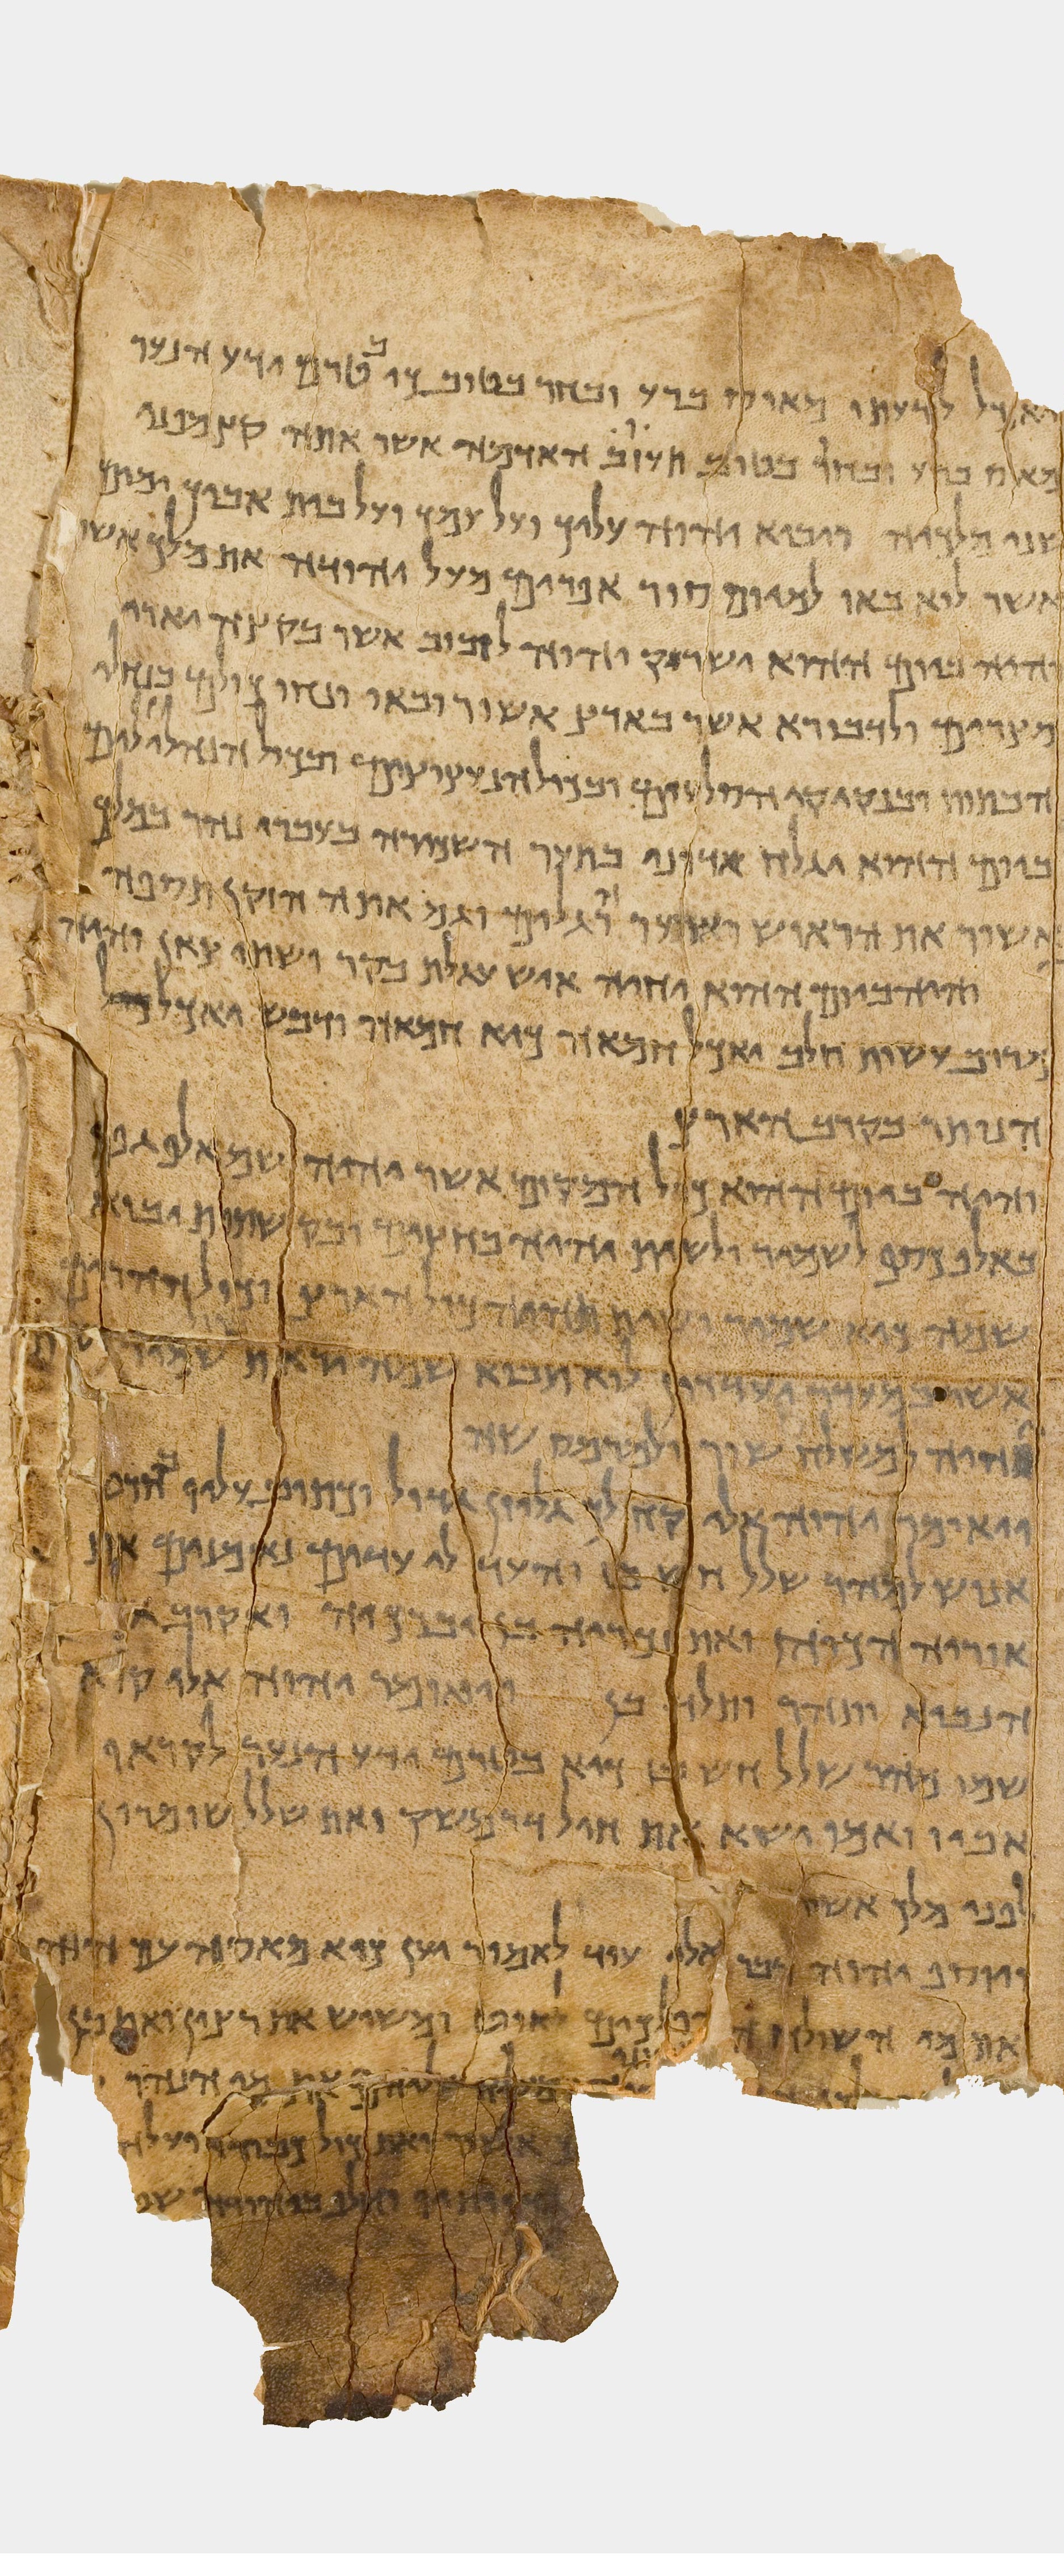 יאוכל לדעתו מאוס ברע ובחר בטוב כי בטרם ידע הנער
מאוס ברע ובחר בטוב תעזוב האדמה אשר אתה קץ מפני
שני מלכיה ויביא יהוה עליך ועל עמך ועל בית אביך ימים
אשר לוא באו למיום סור אפרים מעל יהודה את מלך אשור
והיה ביום ההוא ישרוק יהוה לזבוב אשר בקצה יאורי
מצרים ולדבורא אשר בארץ אשור ובאו ונחו כולם בנחלי
הבתות ובנקיקי הסלעים ובכול הנעצוצים ובכול הנהלולים
ביום ההוא יגלח אדוני בתער השכירה בעברי נהר במלך
אשור את הראוש ושער הרגלים וגם את הזקן תספה
והיה ביום ההוא יחיה איש עגלת בקר ושתי צאן והיה
מרוב עשות חלב יאכל חמאה כיא חמאה ודבש יאכל כול
הנותר בקרב הארץ
והיה ביום ההוא כול המקום אשר יהיה שם אלף גפן
באלף כסף לשמיר ולשית יהיה בחצים ובקשתות יבוא
שמה כיא שמיר ושית תהיה כול הארץ וכול ההרים
אשר במעדר יעדרון לוא תבוא שמה יראת שמיר
והיה למשלח שור ולמרמס שה
ויאומר יהוה אלי קח לך גליון גדול וכתוב עליו בחרט
אנוש למהר שלל חש בז והעד לי עדים נאמנים את
אוריה הכוהן ואת זכריה בן יברכיה ואקרב אל
הנביאה ותהר ותלד בן ויאומר יהוה אלי קרא
שמו מהר שלל חש בז כיא בטרם ידע הנער לקרוא
אביו ואמו ישא את חיל דרמשק ואת שלל שומרון
לפני מלך אשור
ויוסף יהוה דבר אלי עוד לאמור יען כיא מאס העם הזה
את מי השולח ההולכים לאוט ומשוש את רצין ואת בן
את מי הנהר
אשור ואת כול כבודו ועלה
וחלף ביהודה